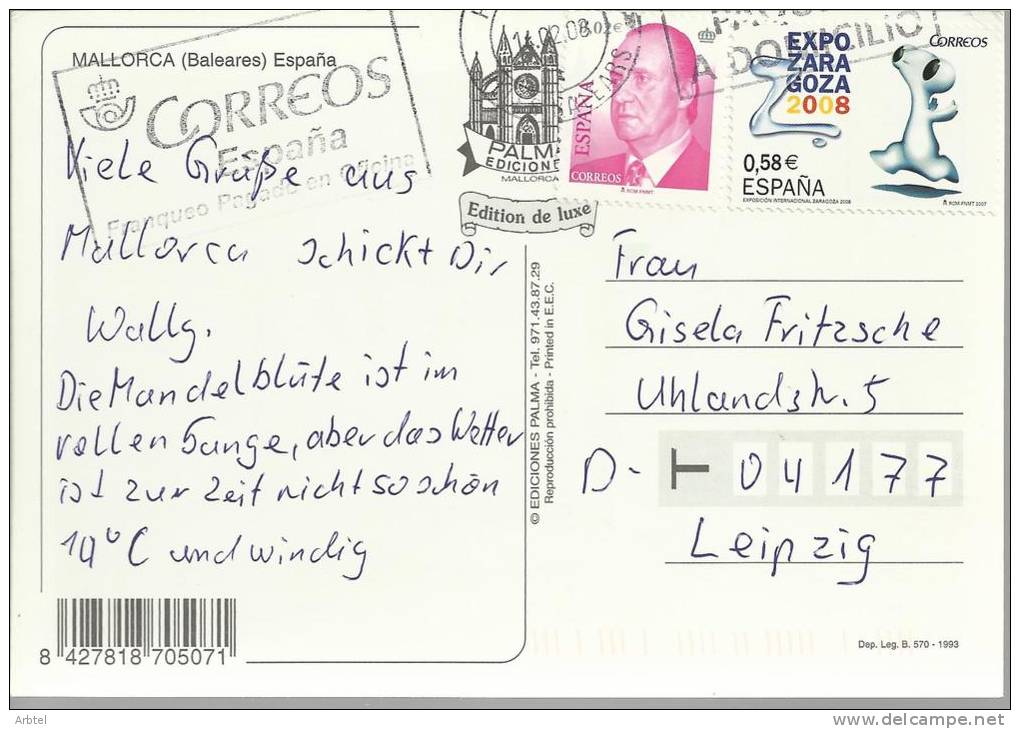 MALLORCA (Baleares) España
CORREOS
España
Franqueo Pagado en Oficina
Viele Grüße aus
Mallorca schickt Dir
Wallg.
Die Mandelblüte ist im
vollen Gange, aber das Wetter
ist zur Zeit nicht so schön
14°C und windig
8 427818 705071
02.08
BALEARS
PALMA
EDICIONE
MALLORCA
Edition de luxe
© EDICIONES PALMA - Tel. 971.43.87.29
Reproducción prohibida - Printed in E.E.C.
0,02€
ESPAÑA
CORREOS
RCM-FNMT
A DOMICILIO
EXPO
ZARA
GOZA
2008
CORREOS
0,58€
ESPAÑA
EXPOSICIÓN INTERNACIONAL ZARAGOZA 2008
RCM-FNMT 2007
Frau
Gisela Fritzsche
Uhlandstr. 5
D- 04177
Leipzig
Dep. Leg. B. 570 - 1993
Arbtel
www.delcampe.net